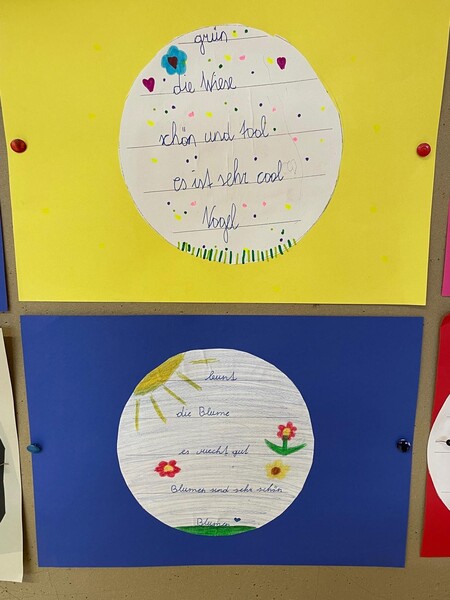 grün
die Wiese
schön und tool
es ist sehr cool
Vogel
bunt
die Blume
es riecht gut
Blumen sind sehr schön
Blumen